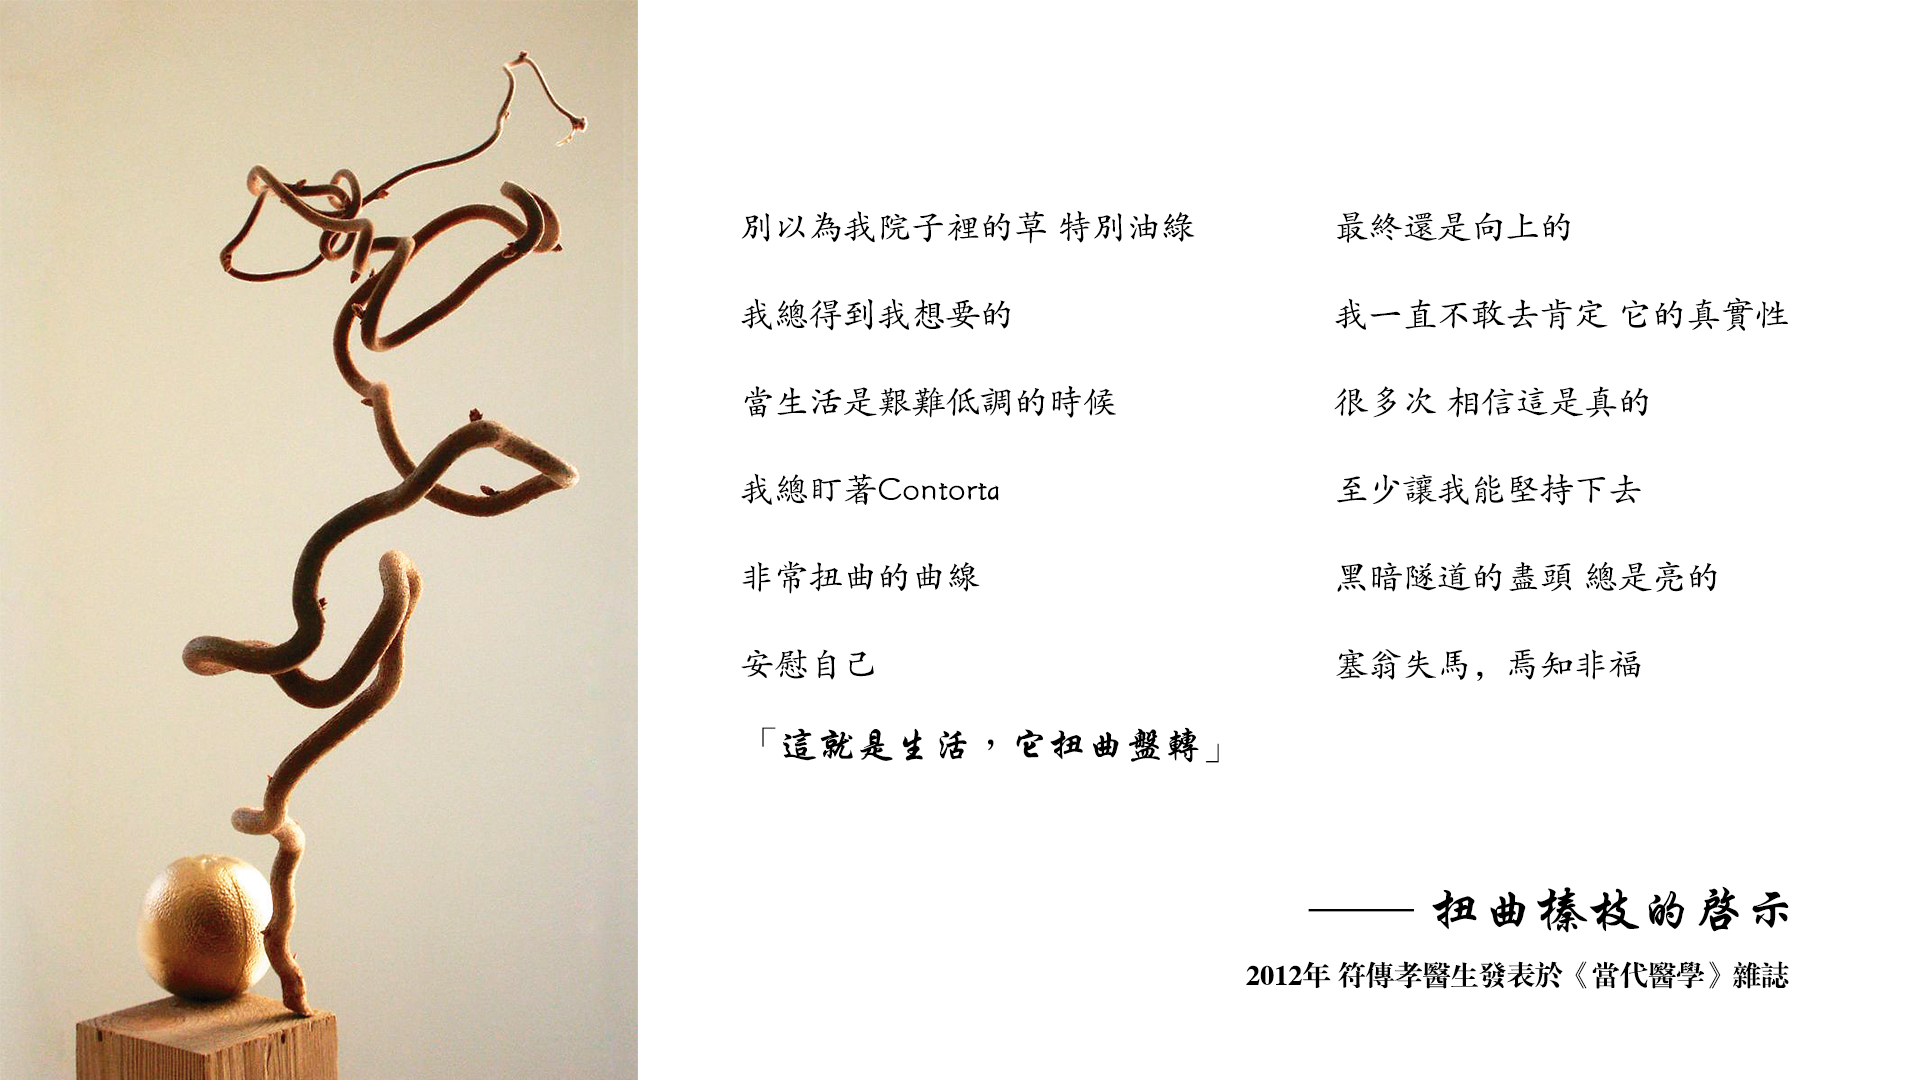 別以為我院子裡的草 特別油綠
我總得到我想要的
當生活是艱難低調的時候
我總盯著Contorta
非常扭曲的曲線
安慰自己
「這就是生活，它扭曲盤轉」
最終還是向上的
我一直不敢去肯定 它的真實性
很多次 相信這是真的
至少讓我能堅持下去
黑暗隧道的盡頭 總是亮的
塞翁失馬，焉知非福
—— 扭曲榛枝的啓示
2012年 符傳孝醫生發表於《當代醫學》雜誌